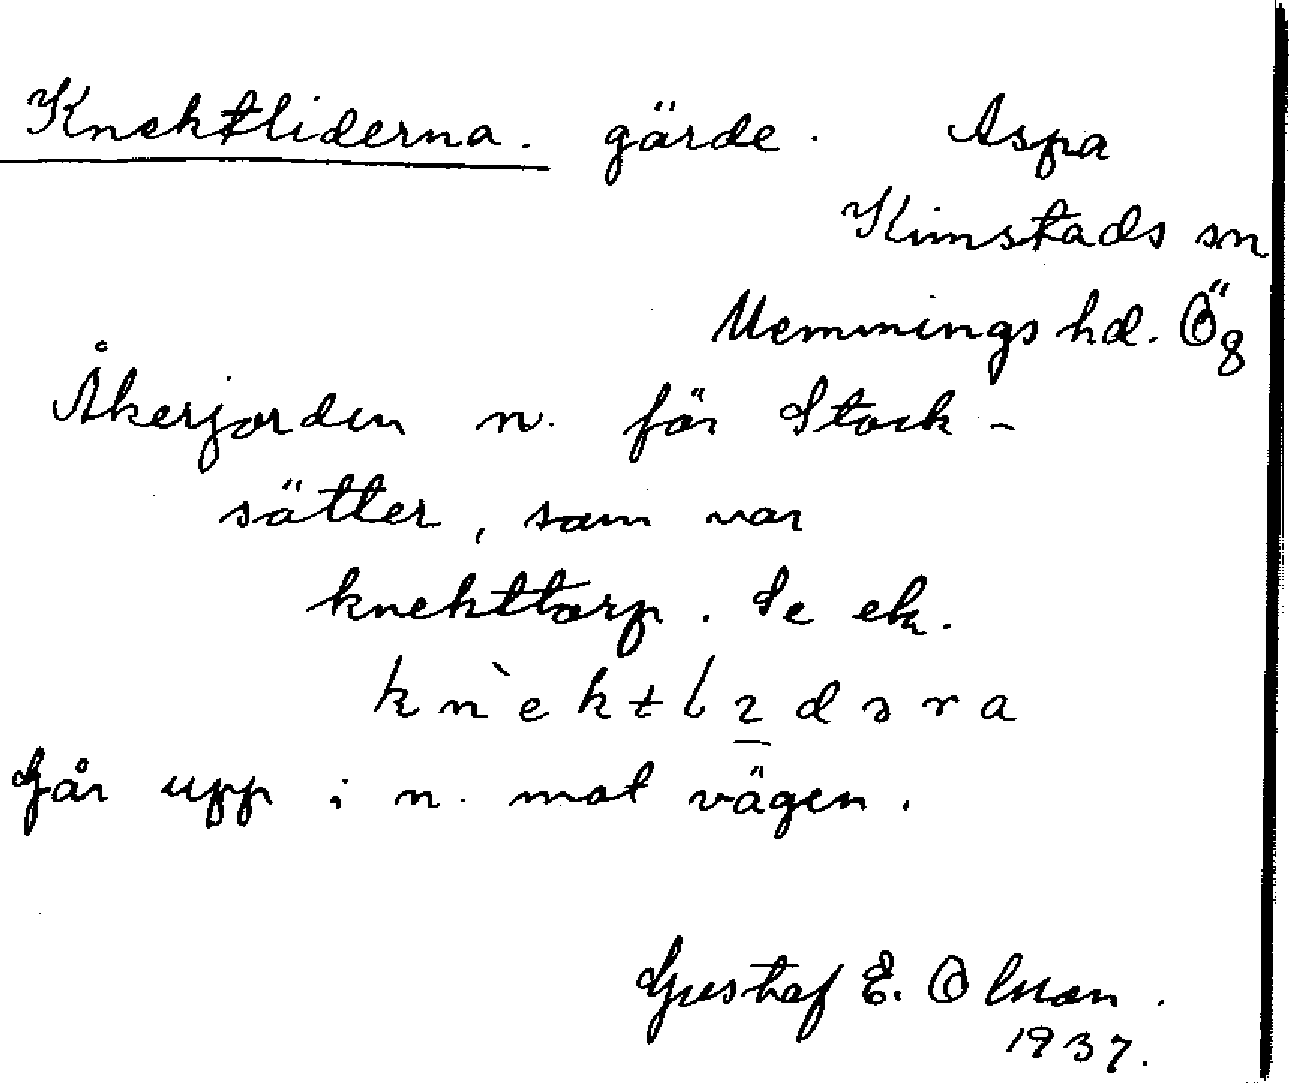 Knektliderna. gärde. Aspa
Kimstads sn
Memmings hd. Ög
Åkerjorden n. för Stock-
sätter, som var
knekttorp. Se ek.
Går upp i n. mot vägen.
Gustaf E. Olsson.
1937.